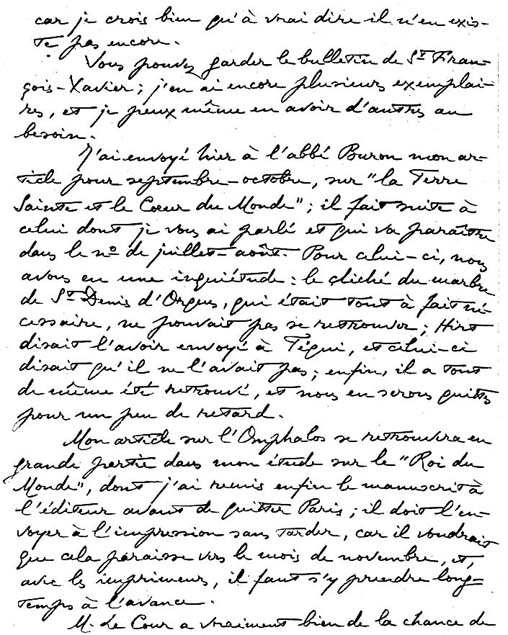 car je crois bien qu'à vrai dire il n'en exis-
te pas encore.
Vous pouvez garder le bulletin de St Fran-
çois-Xavier; j'en ai encore plusieurs exemplai-
res, et je peux même en avoir d'autres au
besoin.
J'ai envoyé hier à l'abbé Buron mon ar-
ticle pour septembre-octobre, sur "la Terre
Sainte et le Cœur du Monde"; il fait suite à
celui dont je vous ai parlé et qui va paraître
dans le no de juillet-août. Pour celui-ci, nous
avons eu une inquiétude: le cliché du marbre
de St Denis d'Orques, qui était tout à fait né-
cessaire, ne pouvait pas se retrouver; Hiret
disait l'avoir envoyé à Téqui, et celui-ci
disait qu'il ne l'avait pas; enfin, il a tout
de même été retrouvé, et nous en serons quittes
pour un peu de retard.
Mon article sur l'Omphalos se retrouvera en
grande partie dans mon étude sur le "Roi du
Monde", dont j'ai remis enfin le manuscrit à
l'éditeur avant de quitter Paris; il doit l'en-
voyer à l'impression sans tarder, car il voudrait
que cela paraisse vers le mois de novembre, et,
avec les imprimeurs, il faut s'y prendre long-
temps à l'avance.
M. Le Cour a vraiment bien de la chance de